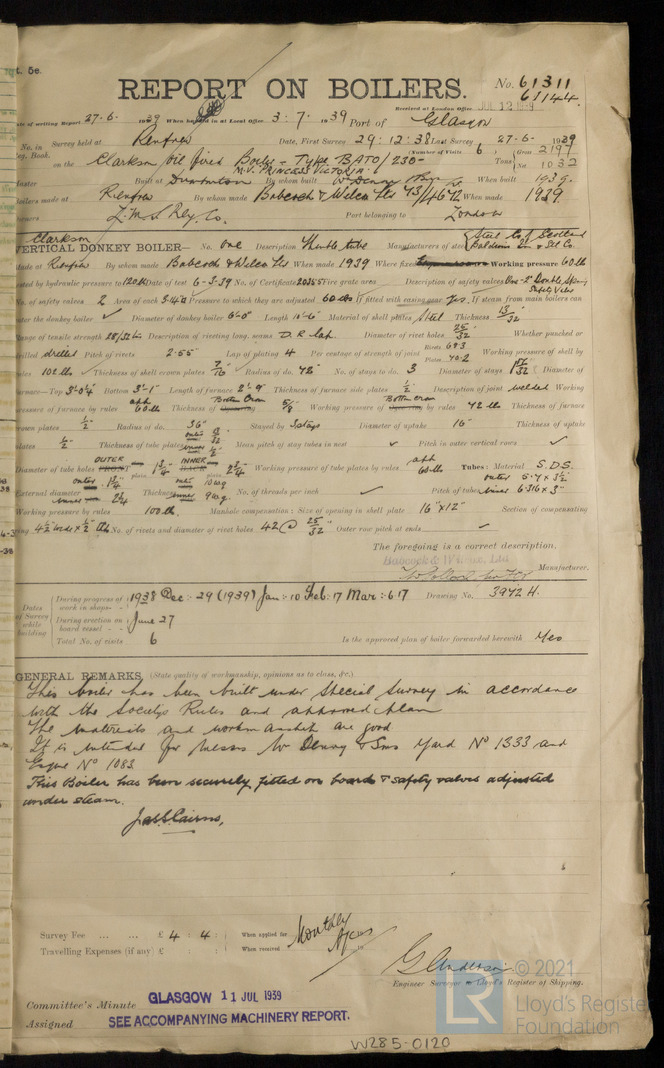 t. 5e.
REPORT ON BOILERS.
No. 61311
61144
Received at London Office JUL 12 1939
ate of writing Report 27-6- 1939 When handed in at Local Office 3. 7. 1939 Port of Glasgow
No. in Survey held at Renfrew Date, First Survey 29:12:38 Last Survey 27-6- 1939
eg. Book. (Number of Visits 6)
on the Clarkson Oil fired Boiler - Type BATO/230- Tons Gross 2197 Net 1032
M.V. PRINCESS VICTORIA
Master Built at Dumbarton By whom built Wm Denny & Bros When built 1939.
oilers made at Renfrew By whom made Babcock & Wilcox Ltd 43/4672 When made 1939.
wners L.M.S. Rly. Co. Port belonging to London
Clarkson
VERTICAL DONKEY BOILER— No. One Description Thimble tube Manufacturers of steel Steel Co. of Scotland
Made at Renfrew By whom made Babcock & Wilcox Ltd When made 1939 Where fixed Working pressure 60 lb
ested by hydraulic pressure to 120 lb Date of test 6-3-39 No. of Certificate 20355 Fire grate area Description of safety valves One-2" Double Spring Safety Valve
No. of safety valves 2 Area of each 3.14 Pressure to which they are adjusted 60 lbs If fitted with easing gear Yes. If steam from main boilers can
enter the donkey boiler ✓ Diameter of donkey boiler 6'-0" Length 11'-6" Material of shell plates Steel Thickness 13/32
Range of tensile strength 28/32 tns Description of riveting long. seams D.R. lap. Diameter of rivet holes 25/32 Whether punched or
drilled drilled Pitch of rivets 2.55 Lap of plating 4 Per centage of strength of joint Rivets 69.3 Plates 70.2 Working pressure of shell by
rules 102 lb Thickness of shell crown plates 7/16 Radius of do. 72" No. of stays to do. 3 Diameter of stays Diameter of
furnace—Top 3'-0¼" Bottom 3'-1" Length of furnace 2'-9" Thickness of furnace side plates ½ Description of joint welded Working
pressure of furnace by rules 60 lb Thickness of Bottom Crown 5/8 Working pressure of Bottom Crown by rules 72 lb Thickness of furnace
crown plates ½ Radius of do. 36" Stayed by 3 stays Diameter of uptake 16" Thickness of uptake
plates ½ Thickness of tube plates outer inner ½ Mean pitch of stay tubes in nest ✓ Pitch in outer vertical rows ✓
Diameter of tube holes OUTER 1¾ INNER 2¾ Working pressure of tube plates by rules 60 lb Tubes: Material S.D.S.
External diameter outer 1¾ inner 2¾ Thickness outer 10 wg inner 9 wg. No. of threads per inch ✓ Pitch of tubes outer inner
Working pressure by rules 100 lb. Manhole compensation: Size of opening in shell plate 16" x 12" Section of compensating
ring 4½" wide x ½" thk No. of rivets and diameter of rivet holes 42 @ 25/32" Outer row pitch at ends ✓
The foregoing is a correct description.
Babcock & Wilcox, Ltd Manufacturer.
Dates of Survey while building
During progress of work in shops - - 1938 Dec: 29 (1939) Jan: 10 Feb: 17 Mar: 6. 17 Drawing No. 3972 H.
During erection on board vessel - - June 27
Total No. of visits 6 Is the approved plan of boiler forwarded herewith Yes
GENERAL REMARKS (State quality of workmanship, opinions as to class, &c.)
This boiler has been built under Special Survey in accordance
with the Societys Rules and approved plan
The materials and workmanship are good
It is intended for Messrs Wm Denny & Sons Yard No 1333 and
Engine No 1083.
This Boiler has been securely fitted on board & safety valves adjusted
under steam.
Jas S Cairns,
Survey Fee ... ... £ 4 : 4 : When applied for Monthly A/c
Travelling Expenses (if any) £ : : When received 19
G Anderson
Engineer Surveyor to Lloyd's Register of Shipping.
Committee's Minute GLASGOW 11 JUL 1939
Assigned SEE ACCOMPANYING MACHINERY REPORT.
W285-0120
LR
© 2021
Lloyd's Register
Foundation